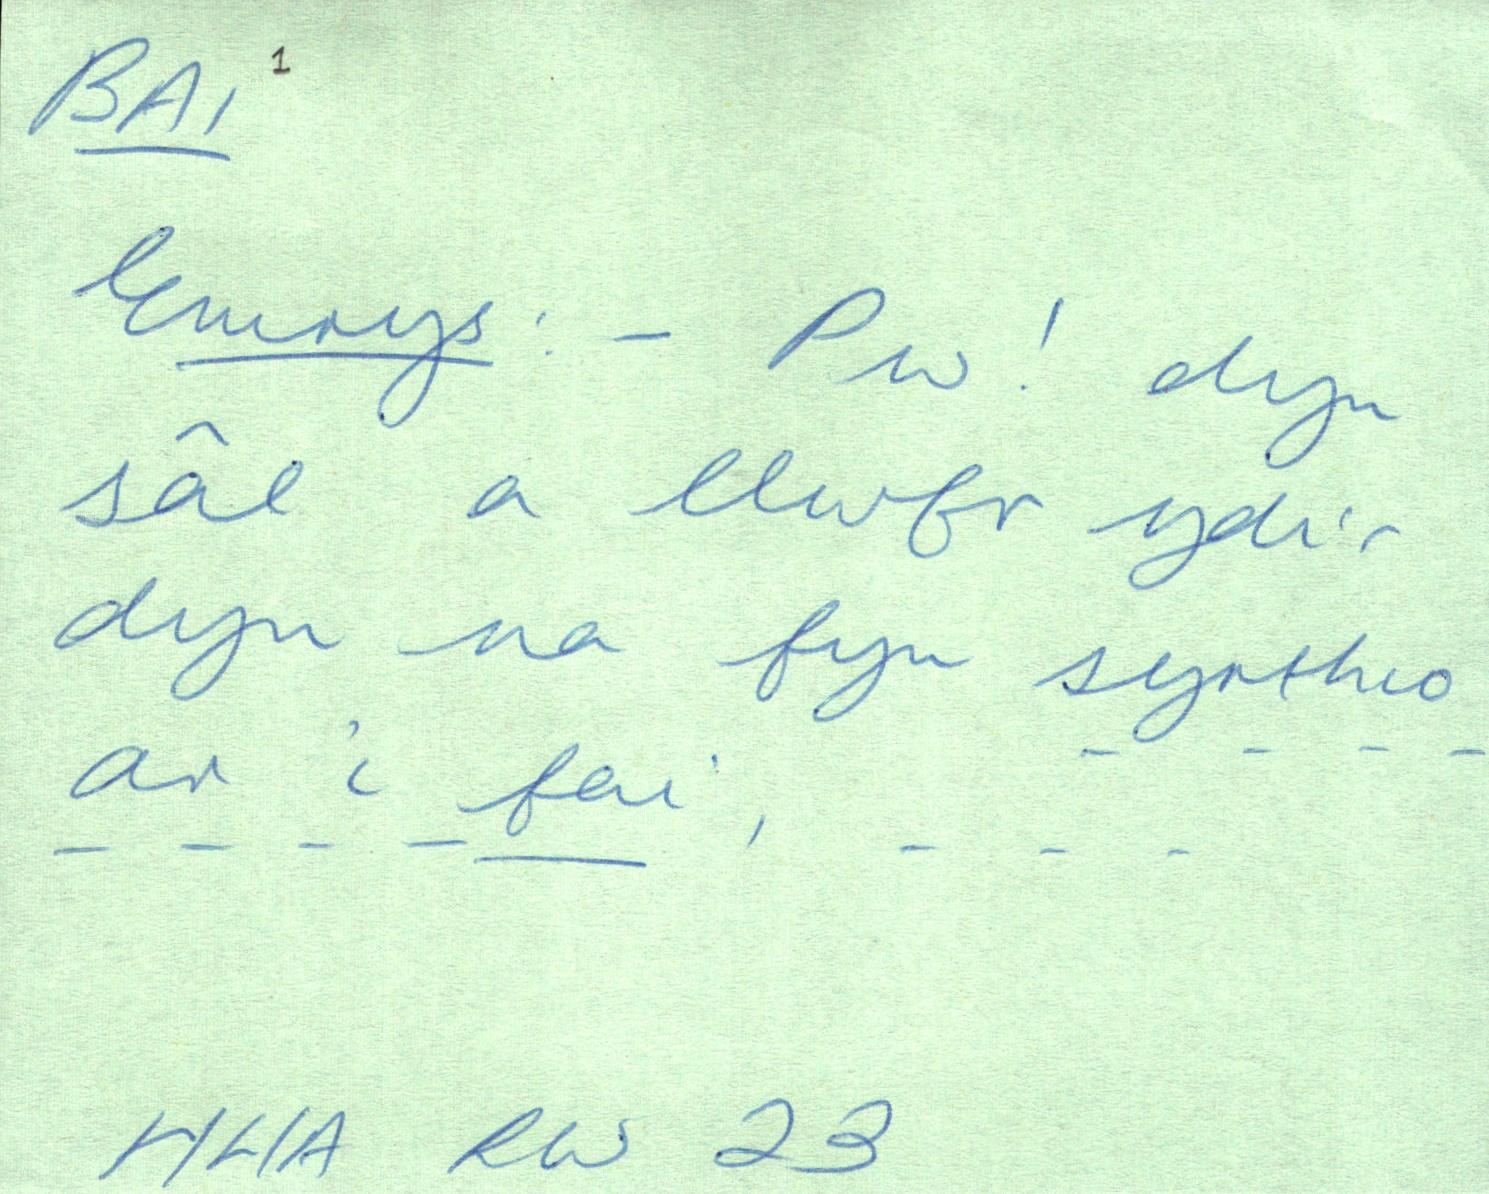 BAI 1
Emrys: - Pw! dyn
sâl a llwfr ydi'r
dyn na fyn syrthio
ar 'i fai,
RW 23